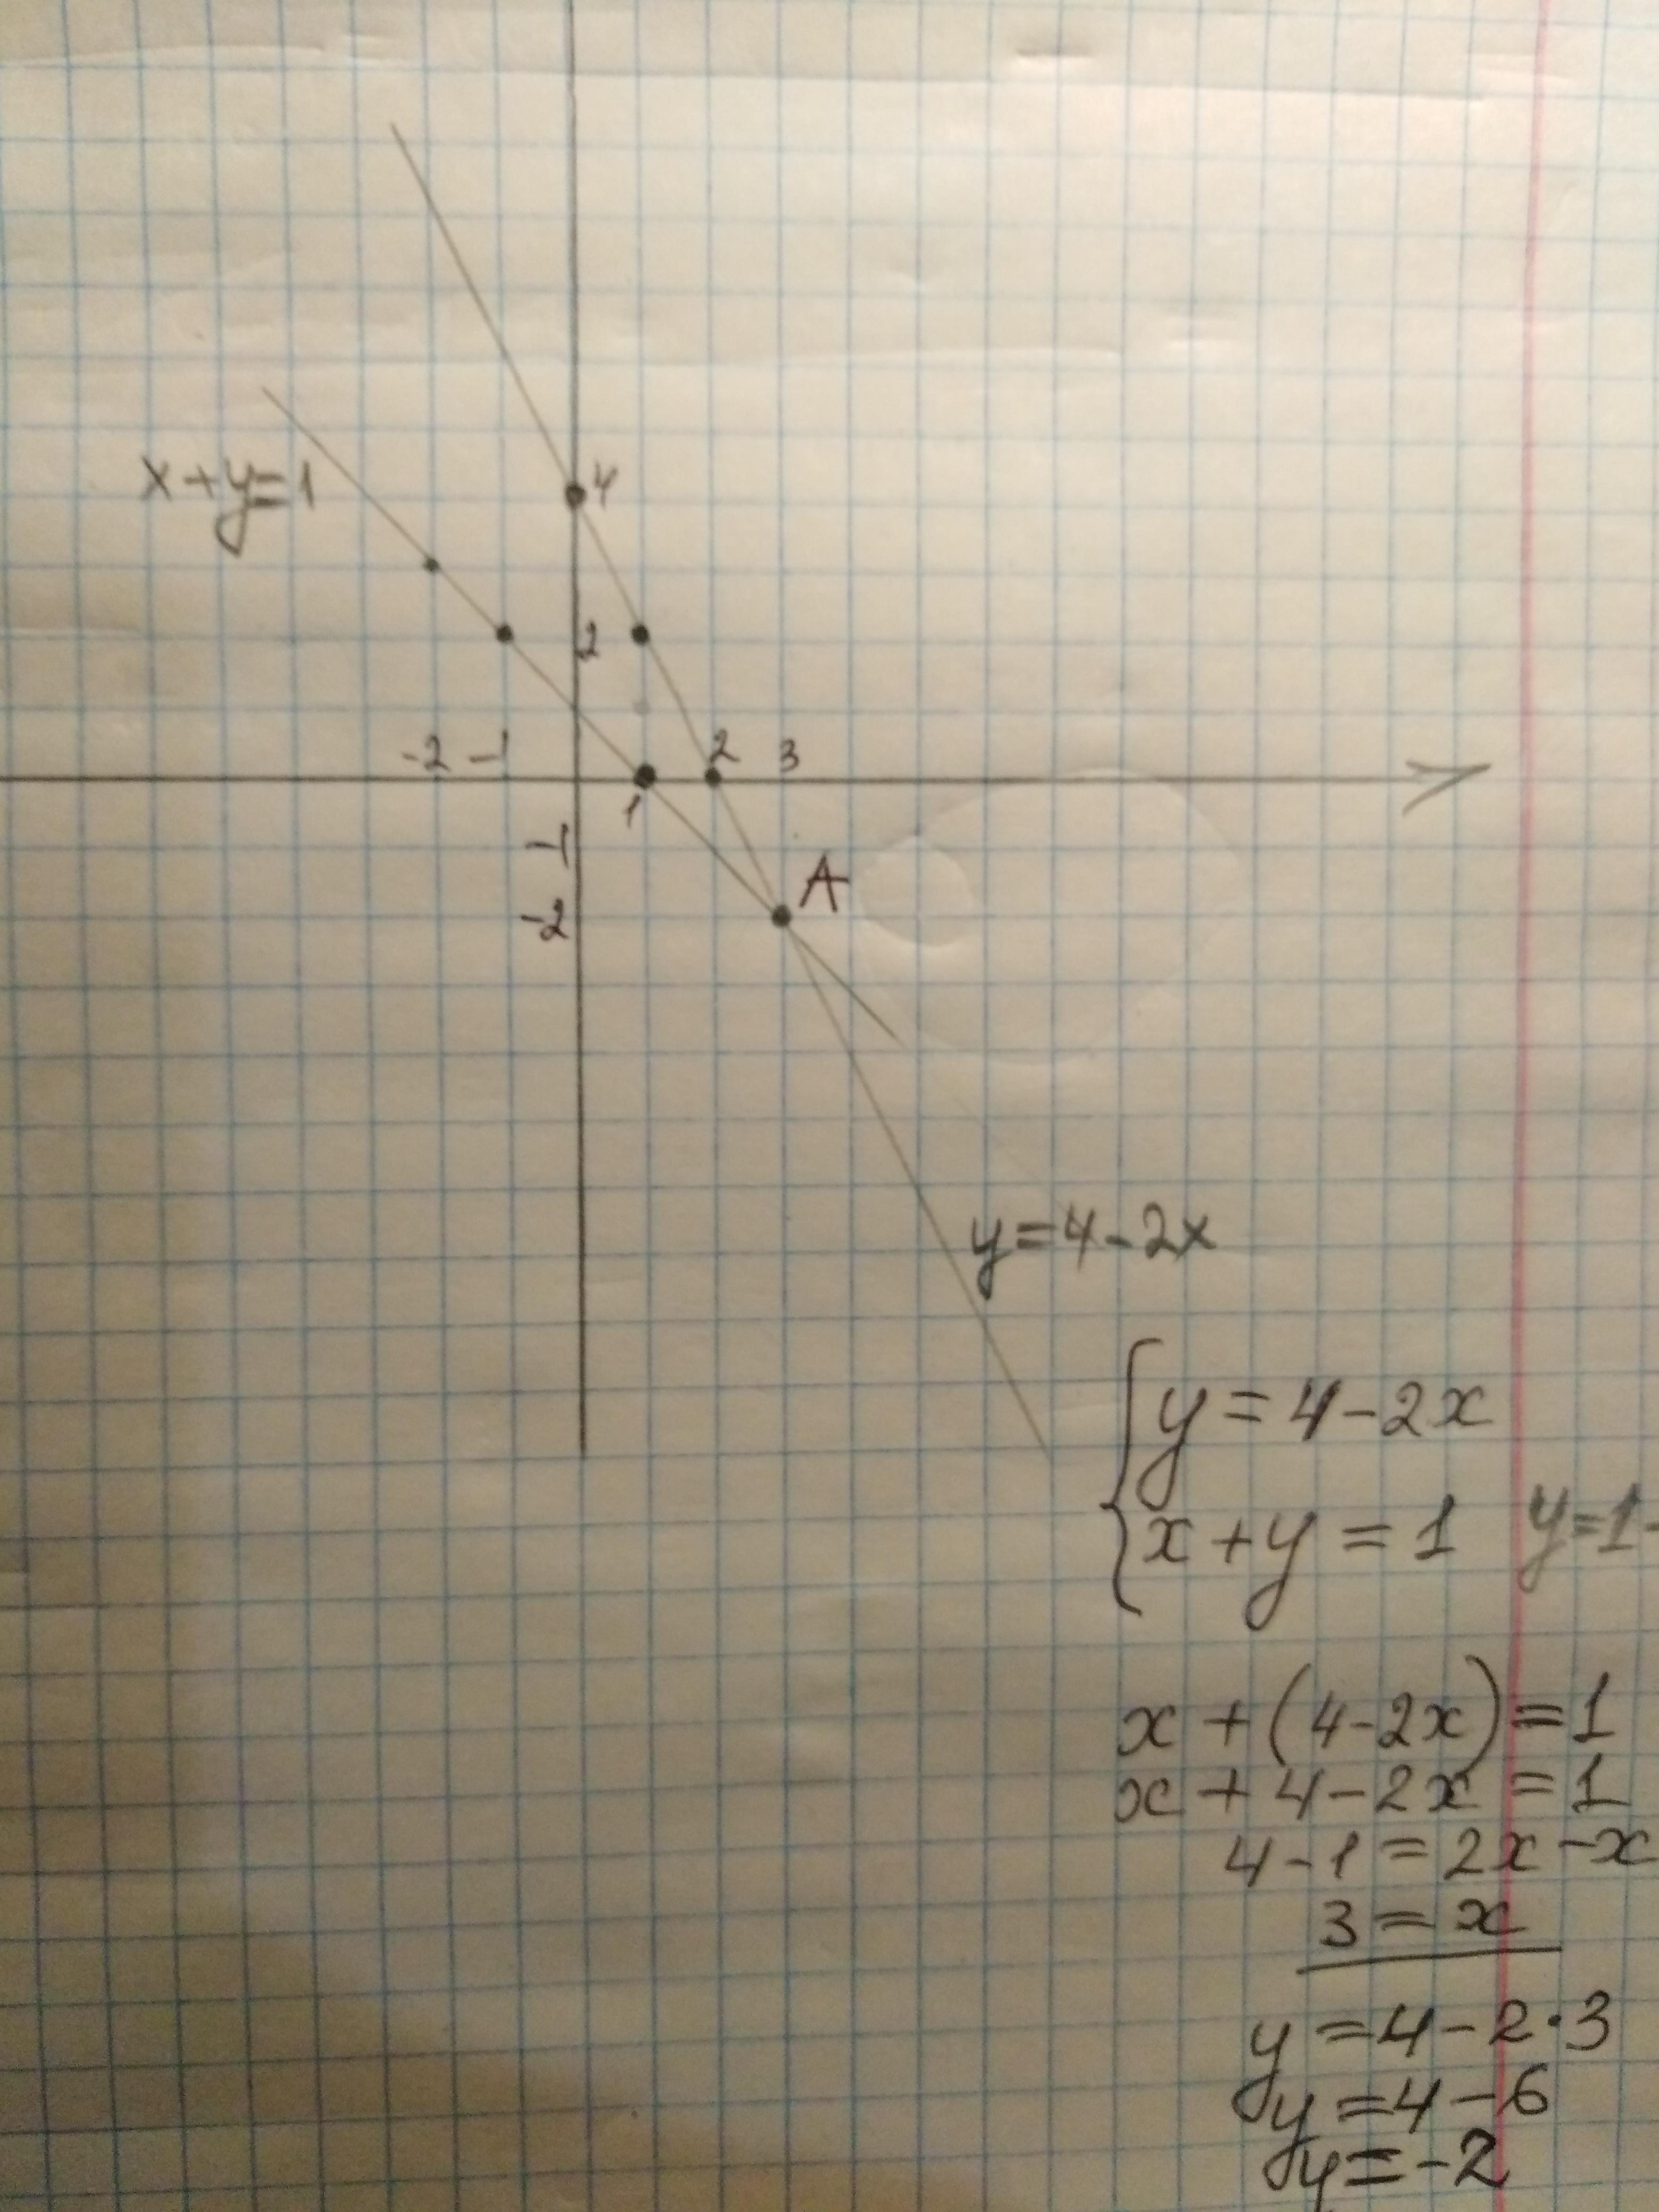 x+y=1
4
2
-2 -1
2 3
1
-1
-2
A
y=4-2x
y=4-2x
x+y=1 y=1-
x+(4-2x)=1
x+4-2x=1
4-1=2x-x
3=x
y=4-2·3
y=4-6
y=-2